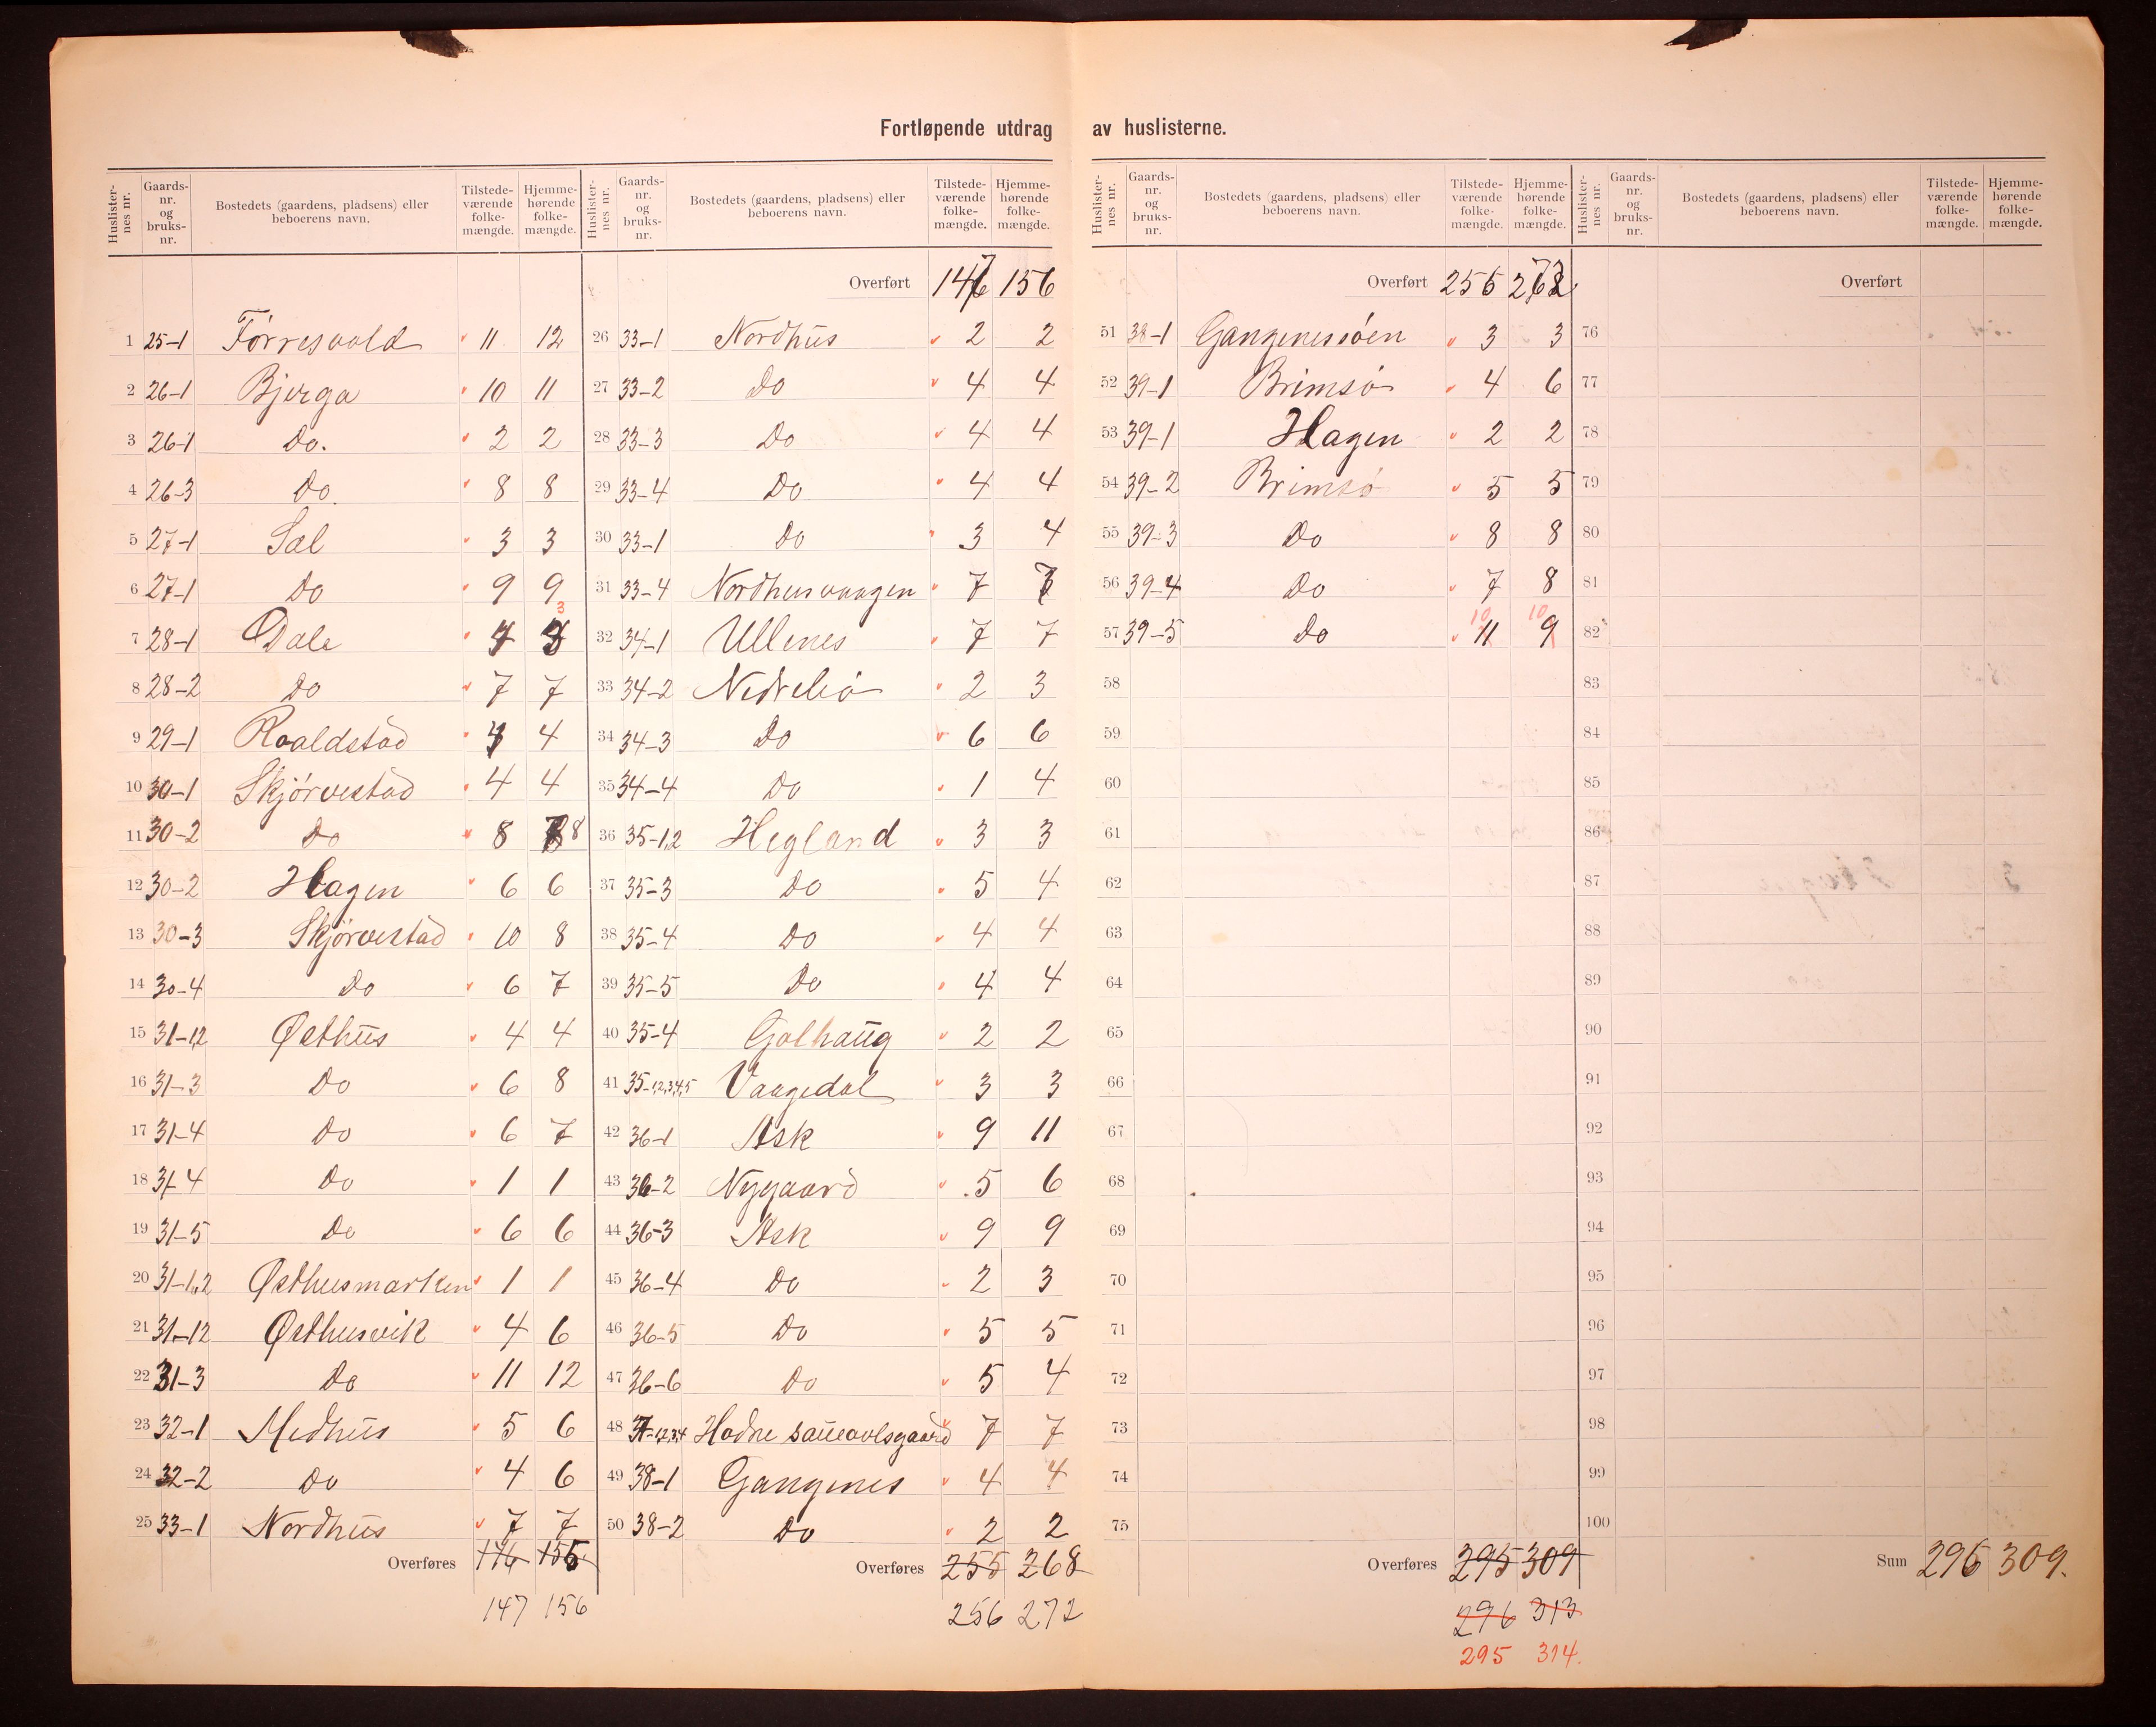 Fortløpende utdrag av huslisterne.
Huslisternes nr. Gaards-nr. og bruks-nr. Bostedets (gaardens, pladsens) eller beboerens navn. Tilstede-værende folke-mængde. Hjemme-hørende folke-mængde.
1 25-1 Førresvold 11 12
2 26-1 Bjerga 10 11
3 26-1 Do. 2 2
4 26-3 Do. 8 8
5 27-1 Sæl 3 3
6 27-1 Do 9 9
7 28-1 Dale 3
8 28-2 Do 7 7
9 29-1 Roaldstad 4
10 30-1 Skjørvestad 4 4
11 30-2 Do 8 8
12 30-2 Hagen 6 6
13 30-3 Skjørvestad 10 8
14 30-4 Do 6 7
15 31-1,2 Østhus 4 4
16 31-3 Do 6 8
17 31-4 Do 6 7
18 31-4 Do 1 1
19 31-5 Do 6 6
20 31-1,2 Østhusmarken 1 1
21 31-12 Østhusvik 4 6
22 31-3 Do 11 12
23 32-1 Medhus 5 6
24 32-2 Do 4 6
25 33-1 Nordhus 7 7
Overføres 146 155
147 156
Huslisternes nr. Gaards-nr. og bruks-nr. Bostedets (gaardens, pladsens) eller beboerens navn. Tilstede-værende folke-mængde. Hjemme-hørende folke-mængde.
Overført 147 156
26 33-1 Nordhus 2 2
27 33-2 Do 4 4
28 33-3 Do 4 4
29 33-4 Do 4 4
30 33-1 Do 3 4
31 33-4 Nordhusvaagen 7 7
32 34-1 Ullenes 7 7
33 34-2 Nedrebø 2 3
34 34-3 Do 6 6
35 34-4 Do 1 4
36 35-1,2 Hegland 3 3
37 35-3 Do 5 4
38 35-4 Do 4 4
39 35-5 Do 4 4
40 35-4 Golhaug 2 2
41 35-1,2,3,4,5 Vaagedal 3 3
42 36-1 Ask 9 11
43 36-2 Nygaard 5 6
44 36-3 Ask 9 9
45 36-4 Do 2 3
46 36-5 Do 5 5
47 36-6 Do 5 4
48 37-1,2,3,4 Hodne saueavlsgaard 7 7
49 38-1 Gangenes 4 4
50 38-2 Do 2 2
Overføres 255 268
256 272
Huslisternes nr. Gaards-nr. og bruks-nr. Bostedets (gaardens, pladsens) eller beboerens navn. Tilstede-værende folke-mængde. Hjemme-hørende folke-mængde.
Overført 256 272
51 38-1 Gangenessøen 3 3
52 39-1 Brimsø 4 6
53 39-1 Hagen 2 2
54 39-2 Brimsø 5 5
55 39-3 Do 8 8
56 39-4 Do 7 8
10 10
57 39-5 Do 11 9
58
59
60
61
62
63
64
65
66
67
68
69
70
71
72
73
74
75
Overføres 295 309
296 313
295 314.
Huslisternes nr. Gaards-nr. og bruks-nr. Bostedets (gaardens, pladsens) eller beboerens navn. Tilstede-værende folke-mængde. Hjemme-hørende folke-mængde.
Overført
76
77
78
79
80
81
82
83
84
85
86
87
88
89
90
91
92
93
94
95
96
97
98
99
100
Sum 296 309.